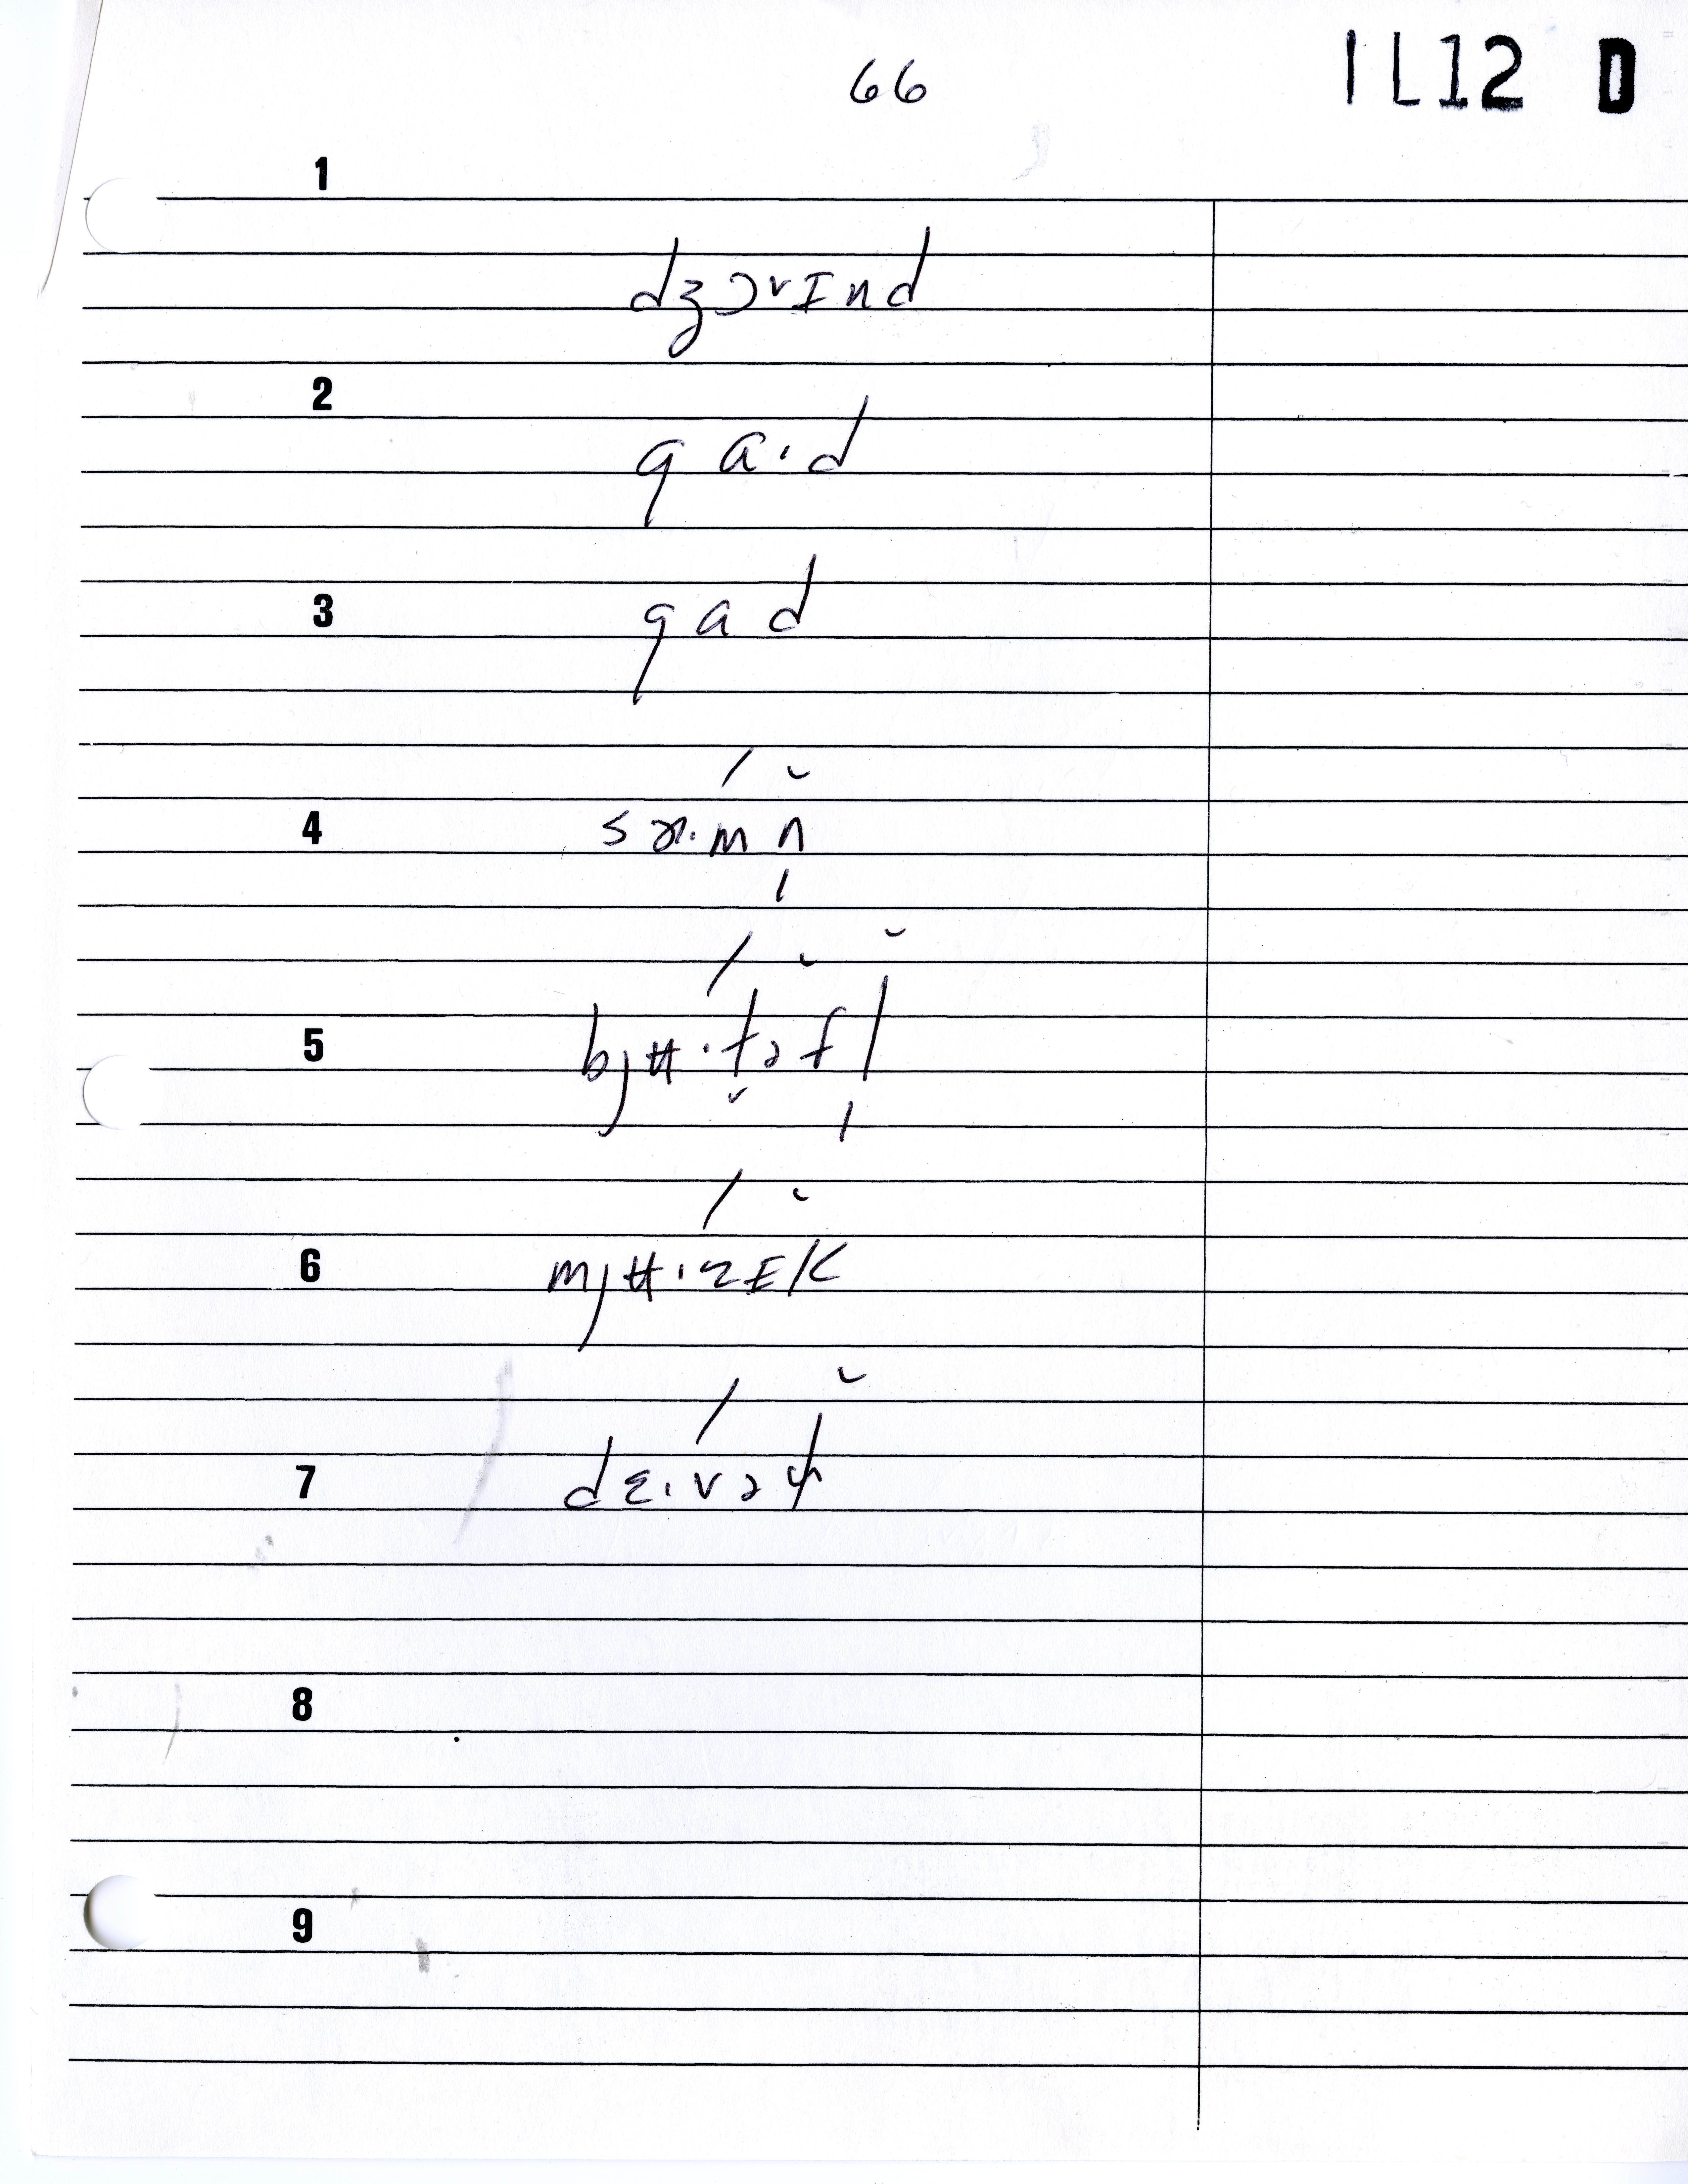 66
IL12 D
1
dʒɔvɪnd
2
gɑ·d
3
gɑd
4
sæ·mn̩
5
bjʉ·t̬əfl̩
6
mjʉ·zɪk
7
dɛ·vəɫ
8
9